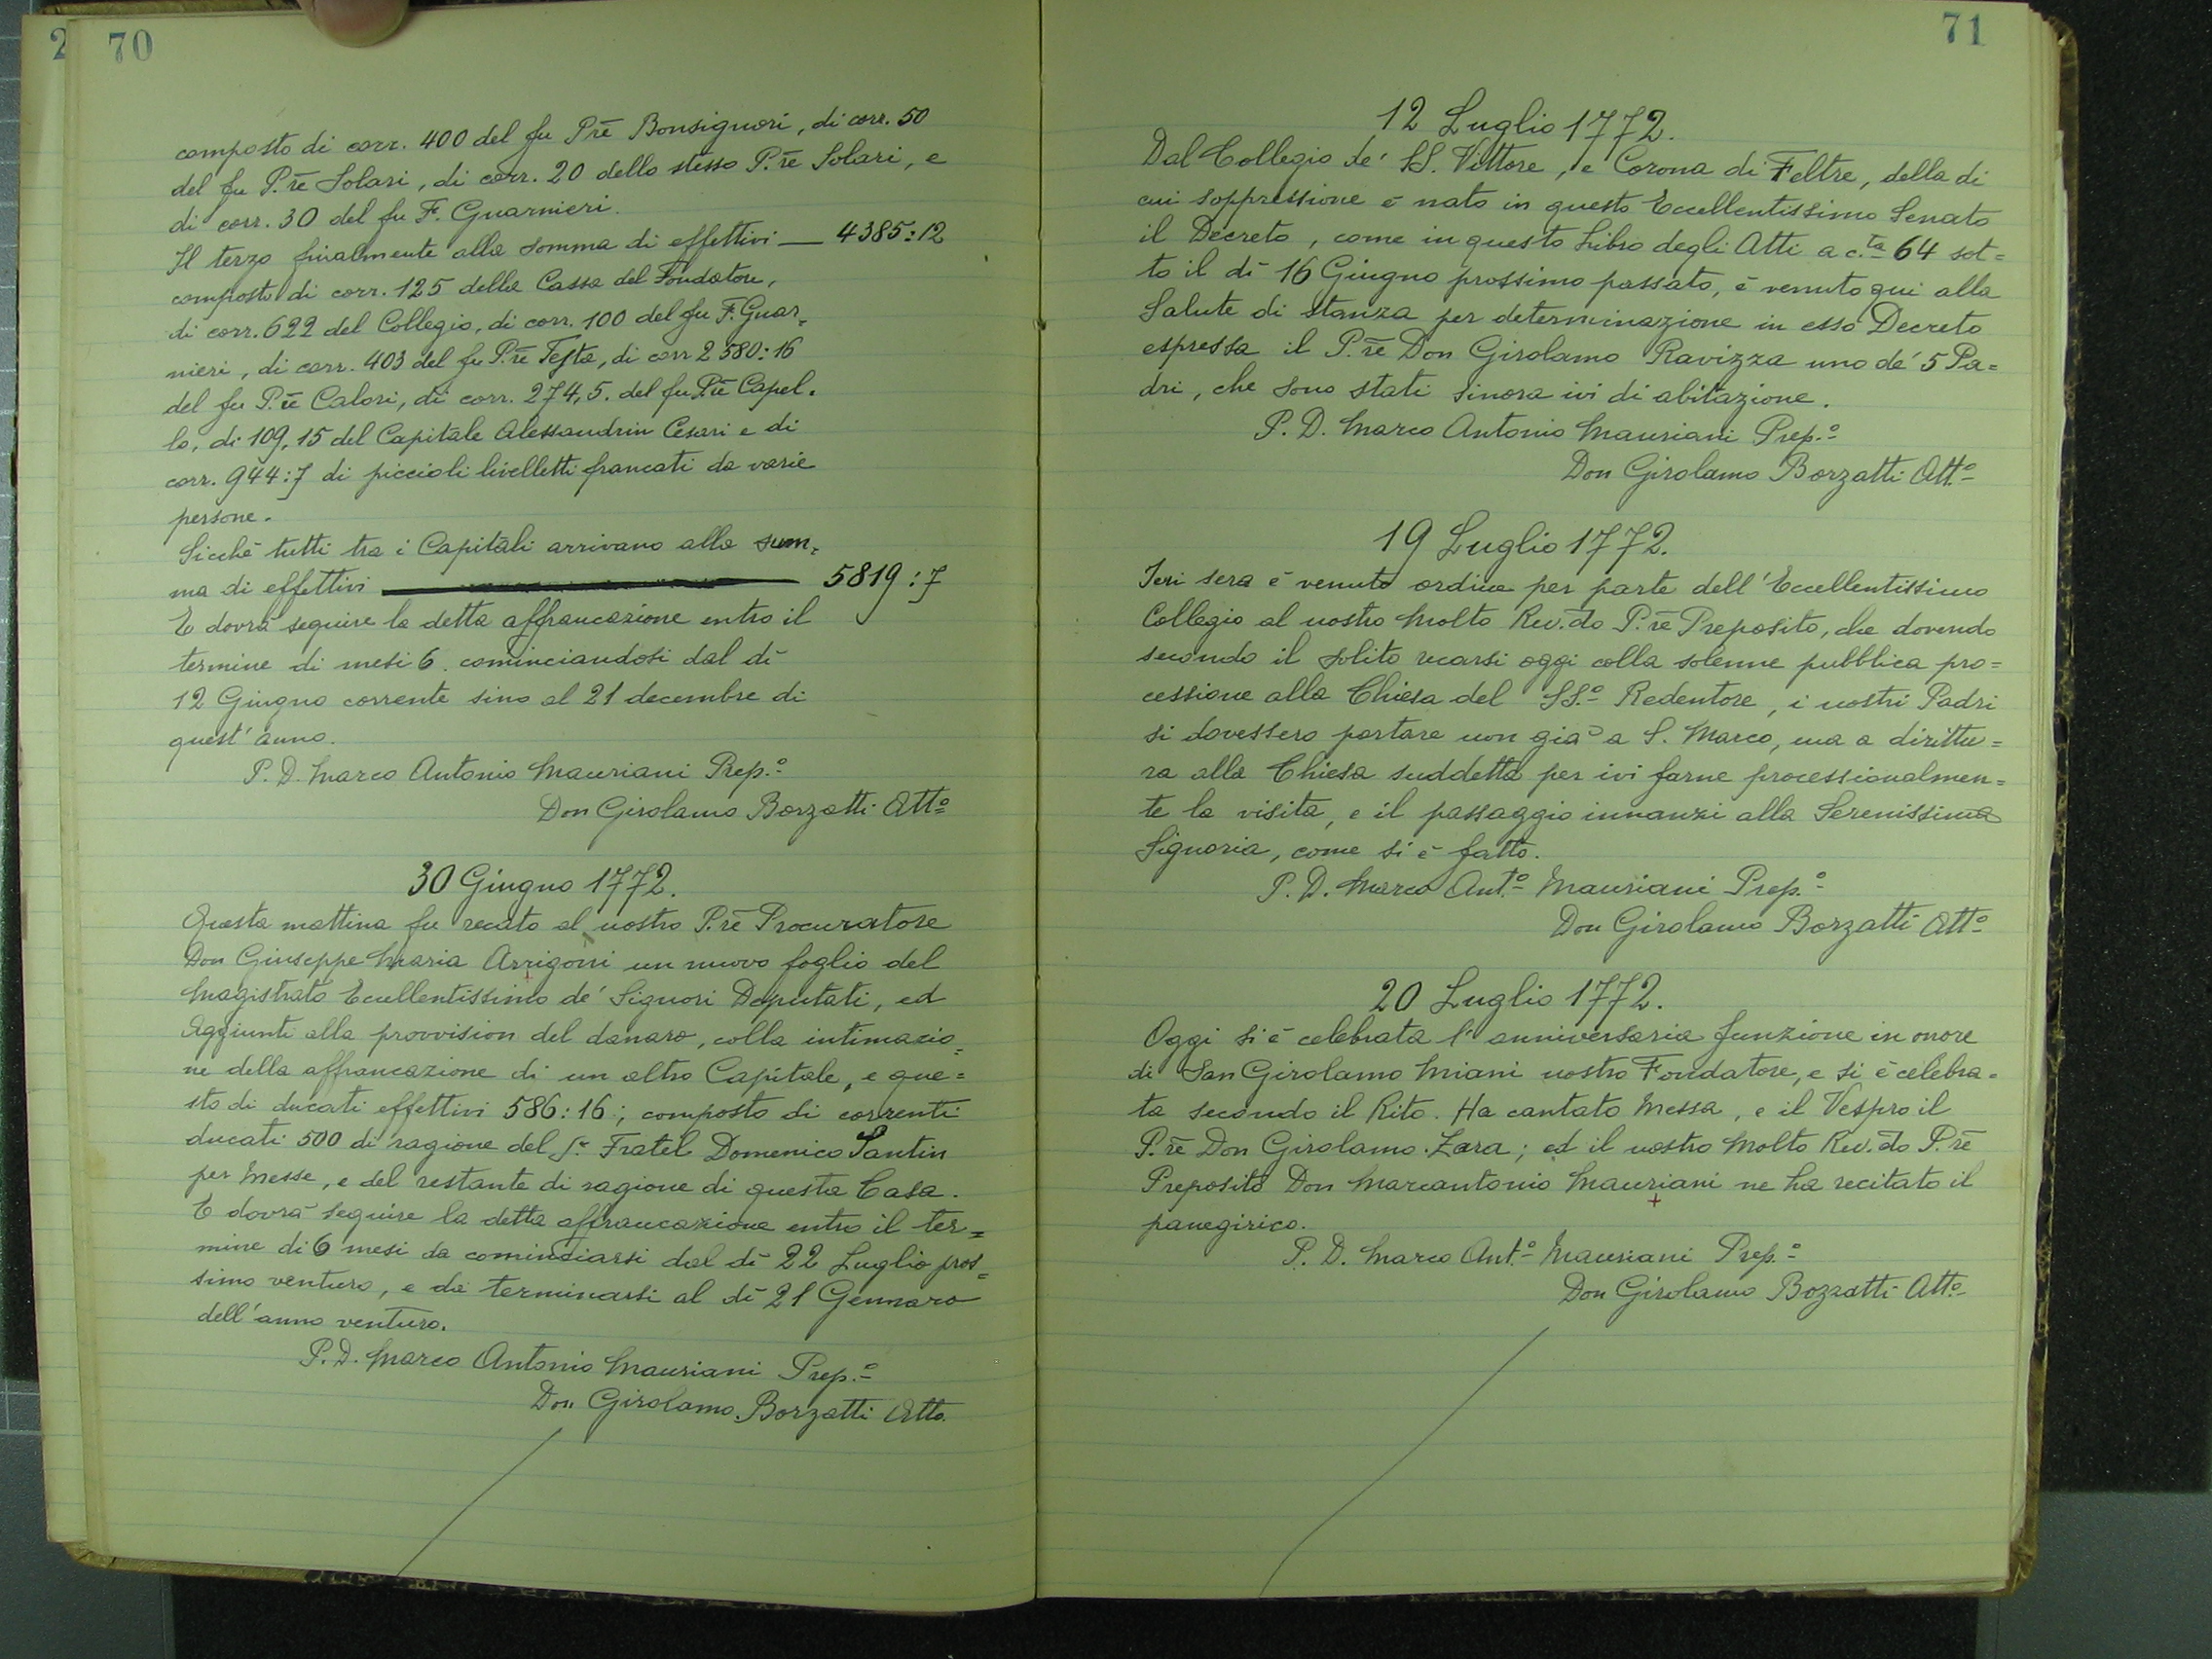 2
70
composto di corr. 400 del fu Prē Bonsignori, di corr. 50
del fu P.rē Solari, di corr. 20 dello stesso P.rē Solari, e
di corr. 30 del fu F. Guarnieri.
Il terzo finalmente alla somma di effettivi — 4385:12
composto di corr. 125 della Cassa del Fondatore,
di corr. 622 del Collegio, di corr. 100 del fu F. Guar=
nieri, di corr. 403 del fu P.rē Testa, di corr 2580:16
del fu P.rē Calori, di corr. 274,5. del fu P.rē Capel=
lo, di 109,15 del Capitale Alessandrin Cesari e di
corr. 944:7 di piccioli livelletti francati da varie
persone.
Sicchè tutti tre i Capitali arrivano alla som=
ma di effettivi — 5819:7
E dovrà seguire la detta affrancazione entro il
termine di mesi 6. cominciandosi dal dì
12 Giugno corrente sino al 21 decembre di
quest'anno.
P. D. Marco Antonio Mauriani Prep.º
Don Girolamo Borzatti Attº
30 Giugno 1772.
Questa mattina fu recato al nostro P.rē Procuratore
Don Giuseppe Maria Arrigoni un nuovo foglio del
Magistrato Eccellentissimo de' Signori Deputati, ed
Aggiunti alla provvision del danaro, colla intimazio=
ne della affrancazione di un altro Capitale, e que=
sto di ducati effettivi 586:16; composto di correnti
ducati 500 di ragione del Fratel Domenico Santin
per Messe, e del restante di ragione di questa Casa.
E dovrà seguire la detta affrancazione entro il ter=
mine di 6 mesi da cominciarsi dal dì 22 Luglio pros=
simo venturo, e da terminarsi al dì 21 Gennaro
dell'anno venturo.
P. D. Marco Antonio Mauriani Prep.º
Don Girolamo Borzatti Atto.
71
12 Luglio 1772.
Dal Collegio de' SS. Vittore, e Corona di Feltre, della di
cui soppressione è nato in questo Eccellentissimo Senato
il Decreto, come in questo Libro degli Atti a c.ta 64 sot=
to il dì 16 Giugno prossimo passato, è venuto qui alla
Salute di stanza per determinazione in esso Decreto
espressa il P.rē Don Girolamo Ravizza uno de' 5 Pa=
dri, che sono stati sinora ivi di abitazione.
P. D. Marco Antonio Mauriani Prep.º
Don Girolamo Borzatti Att.º
19 Luglio 1772.
Ieri sera è venuto ordine per parte dell'Eccellentissimo
Collegio al nostro Molto Rev.do P.rē Preposito, che dovendo
secondo il solito recarsi oggi colla solenne pubblica pro=
cessione alla Chiesa del SS.º Redentore, i nostri Padri
si dovessero portare non già a S. Marco, ma a dirittu=
ra alla Chiesa suddetta per ivi farne processionalmen=
te la visita, e il passaggio innanzi alla Serenissima
Signoria, come si è fatto.
P. D. Marco Ant.º Mauriani Prep.º
Don Girolamo Borzatti Attº
20 Luglio 1772.
Oggi si è celebrata l'anniversaria funzione in onore
di San Girolamo Miani nostro Fondatore, e si è celebra=
ta secondo il Rito. Ha cantato Messa, e il Vespro il
P.rē Don Girolamo Zara; ed il nostro Molto Rev.do P.rē
Preposito Don Marcantonio Mauriani ne ha recitato il
panegirico.
P. D. Marco Ant.º Mauriani Prep.º
Don Girolamo Bozzatti Att.º